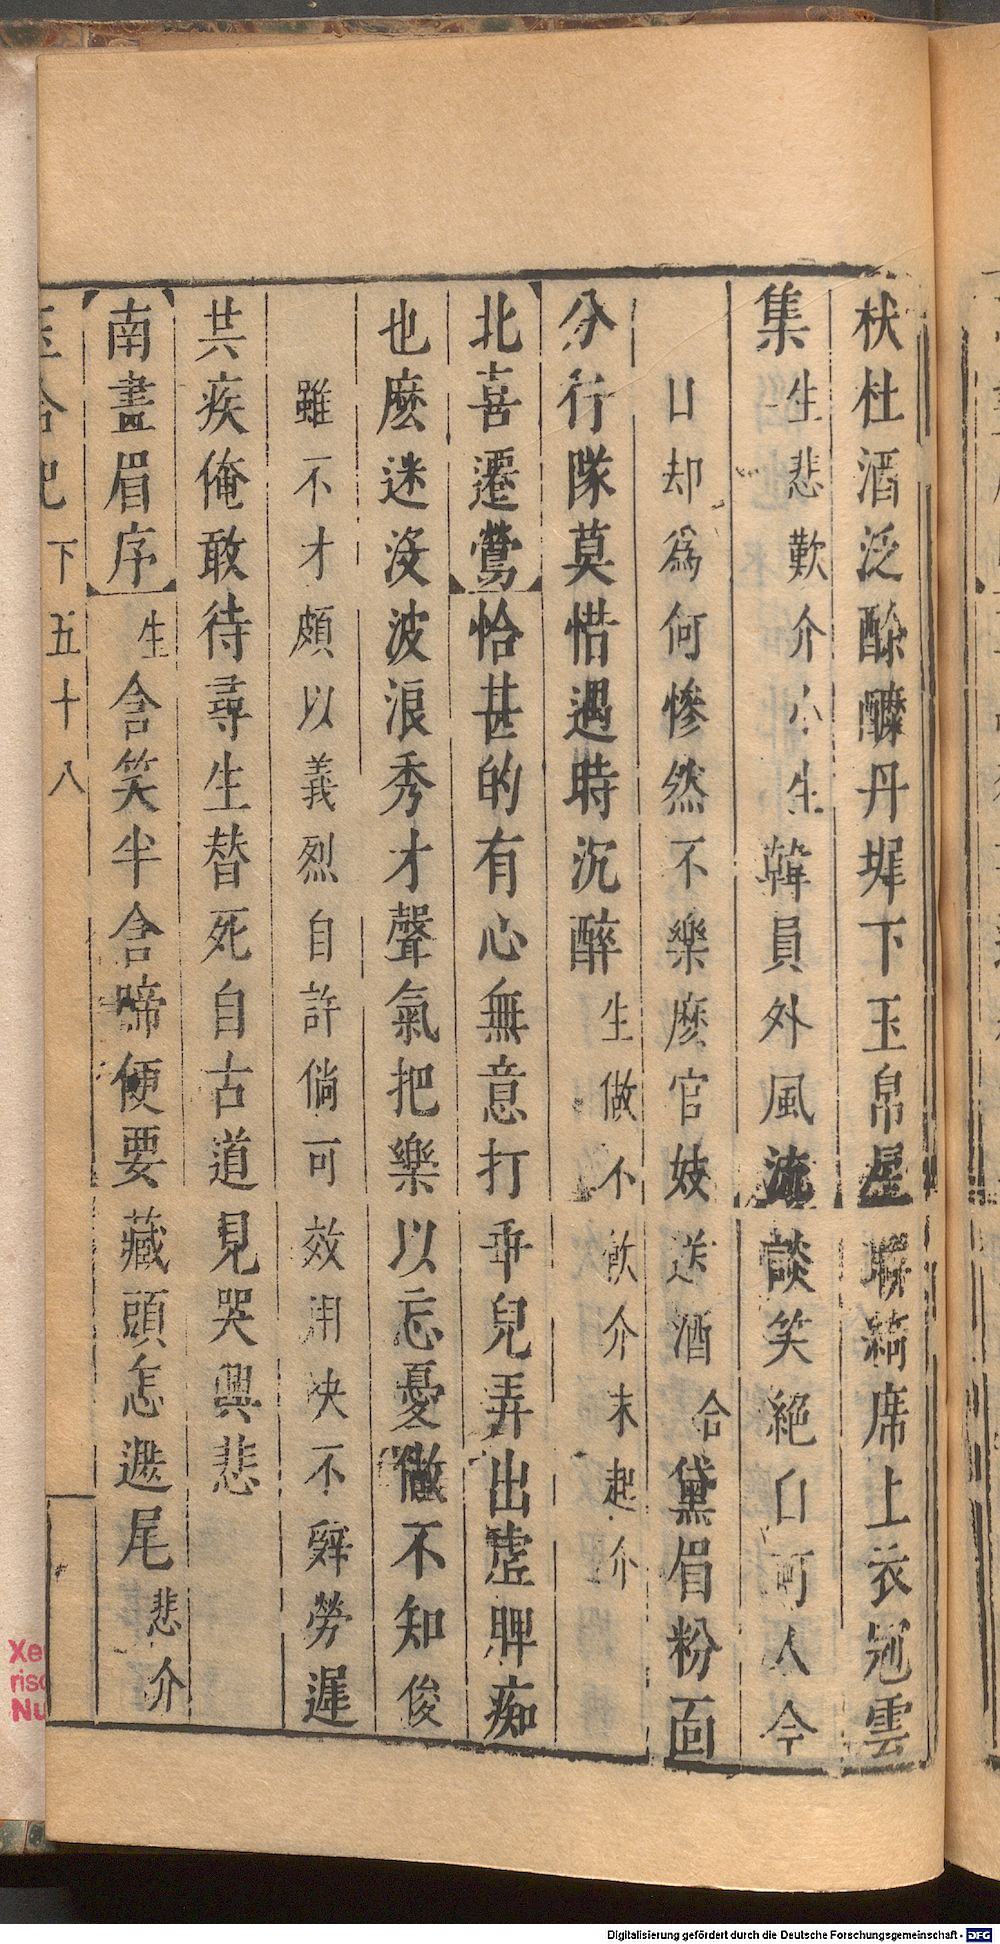 杕杜酒泛酴醾丹墀下玉帛星聯綺席上衣冠雲
集生悲歎介小生韓員外風流談笑絕口可人今
日却爲何慘然不樂麽官妓送酒合黛眉粉面
分行隊莫惜遇時沉醉生做不飲介末起介
北喜遷鶯恰甚的有心無意打乖兒弄出虛脾痴
也麽迷沒波浪秀才聲氣把樂以忘憂做不知俊
雖不才頗以義烈自許倘可效用决不辤勞遲
共疾俺敢待尋生替死自古道見哭興悲
南畫眉序生含笑半含啼便要藏頭怎遮尾悲介
玉合記下五十八
Digitalisierung gefördert durch die Deutsche Forschungsgemeinschaft - DFG